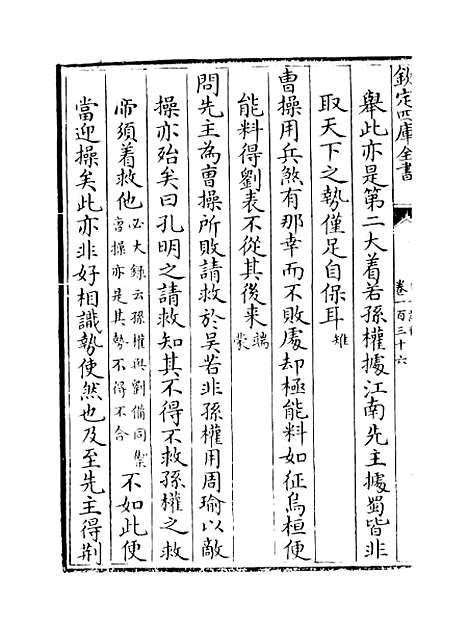 欽定四庫全書
卷一百三十六
舉此亦是第二大着若孫權據江南先主據蜀皆非
取天下之勢僅足自保耳雉
曹操用兵煞有那幸而不敗處却極能料如征烏桓便
能料得劉表不從其後來端蒙
問先主為曹操所敗請救於吳若非孫權用周瑜以敵
操亦殆矣曰孔明之請救知其不得不救孫權之救
備須着救他必大錄云孫權與劉備同禦曹操亦是其勢不得不合不如此便
當迎操矣此亦非好相識勢使然也及至先主得荆